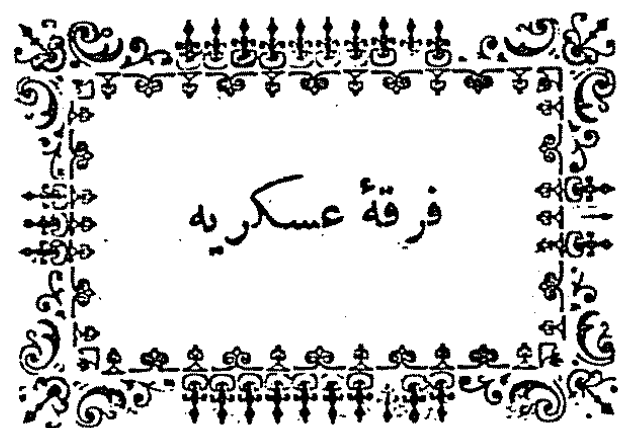 فرقۀ عسكريه